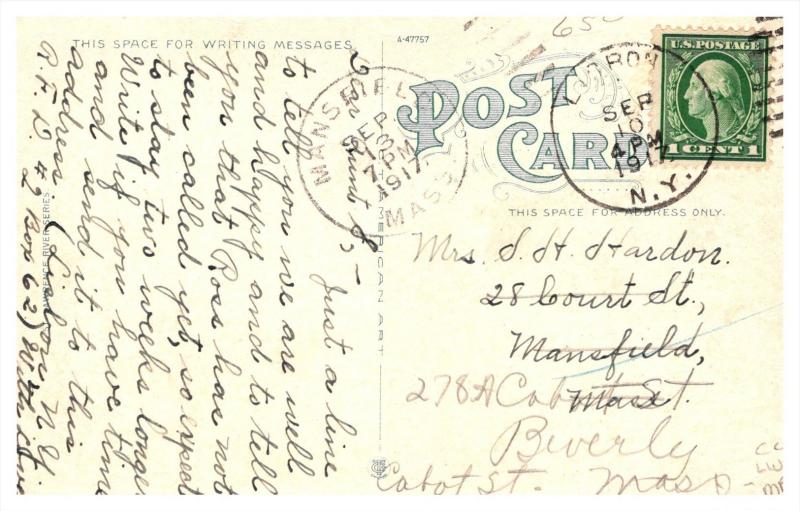 THIS SPACE FOR WRITING MESSAGES
A-47757
POST
CARD
THIS SPACE FOR ADDRESS ONLY.
U.S. POSTAGE
1 CENT 1
SEP
10
4 PM
1917
N.Y.
MANSFIELD
SEP
13
7 PM
1917
MASS.
Dear Aunt
Just a line
to tell you we are well
and happy and to tell
you that Ross has not
been called yet, so expect
to stay two weeks longer.
Write if you have time
and send it to this
address. (Lisbon, N.Y.
R.F.D. #2 Box 62) With love
Mrs. S. H. Hardon.
28 Court St.,
Mansfield,
Mass.
278A Cabot St.
Beverly
Cabot St. Mass
RENCE RIVER SERIES
AMERICAN ART